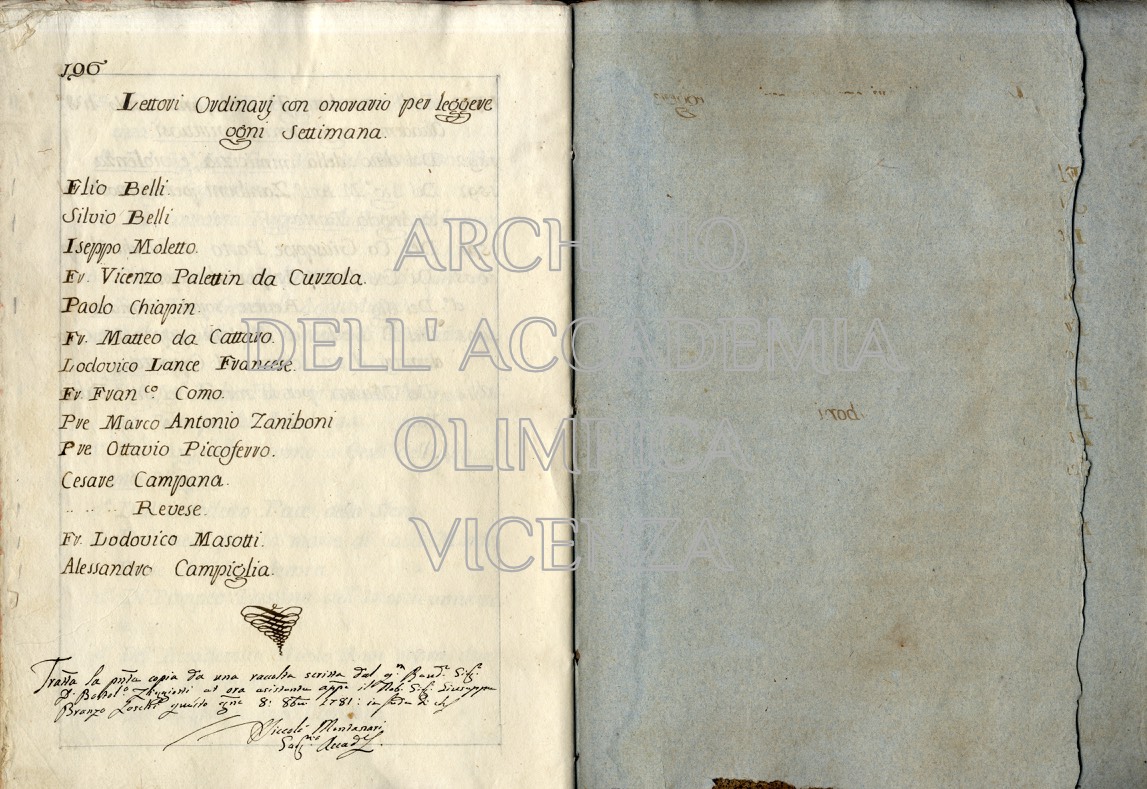 196
Lettori Ordinarj con onorario per leggere
ogni Settimana.
Elio Belli.
Silvio Belli
Iseppo Moletto.
Fr. Vicenzo Palettin da Curzola.
Paolo Chiapin.
Fr. Matteo da Cattaro.
Lodovico Lance Francese.
Fr. Fran.co Como.
Pre Marco Antonio Zaniboni
Pre Ottavio Piccoferro.
Cesare Campana.
. . . . Revese.
Fr. Lodovico Masotti.
Alessandro Campiglia.
Tratta la pñte copia da una raccolta scritta dal
D. Bortol.o et ora esistente app.o il Nob. Sig. Giuseppe
Branzo Loschi questo 8: 8bre 1781: in fede di che
Niccolò Montanari
Accad.
ARCHIVIO
DELL'ACCADEMIA
OLIMPICA
VICENZA